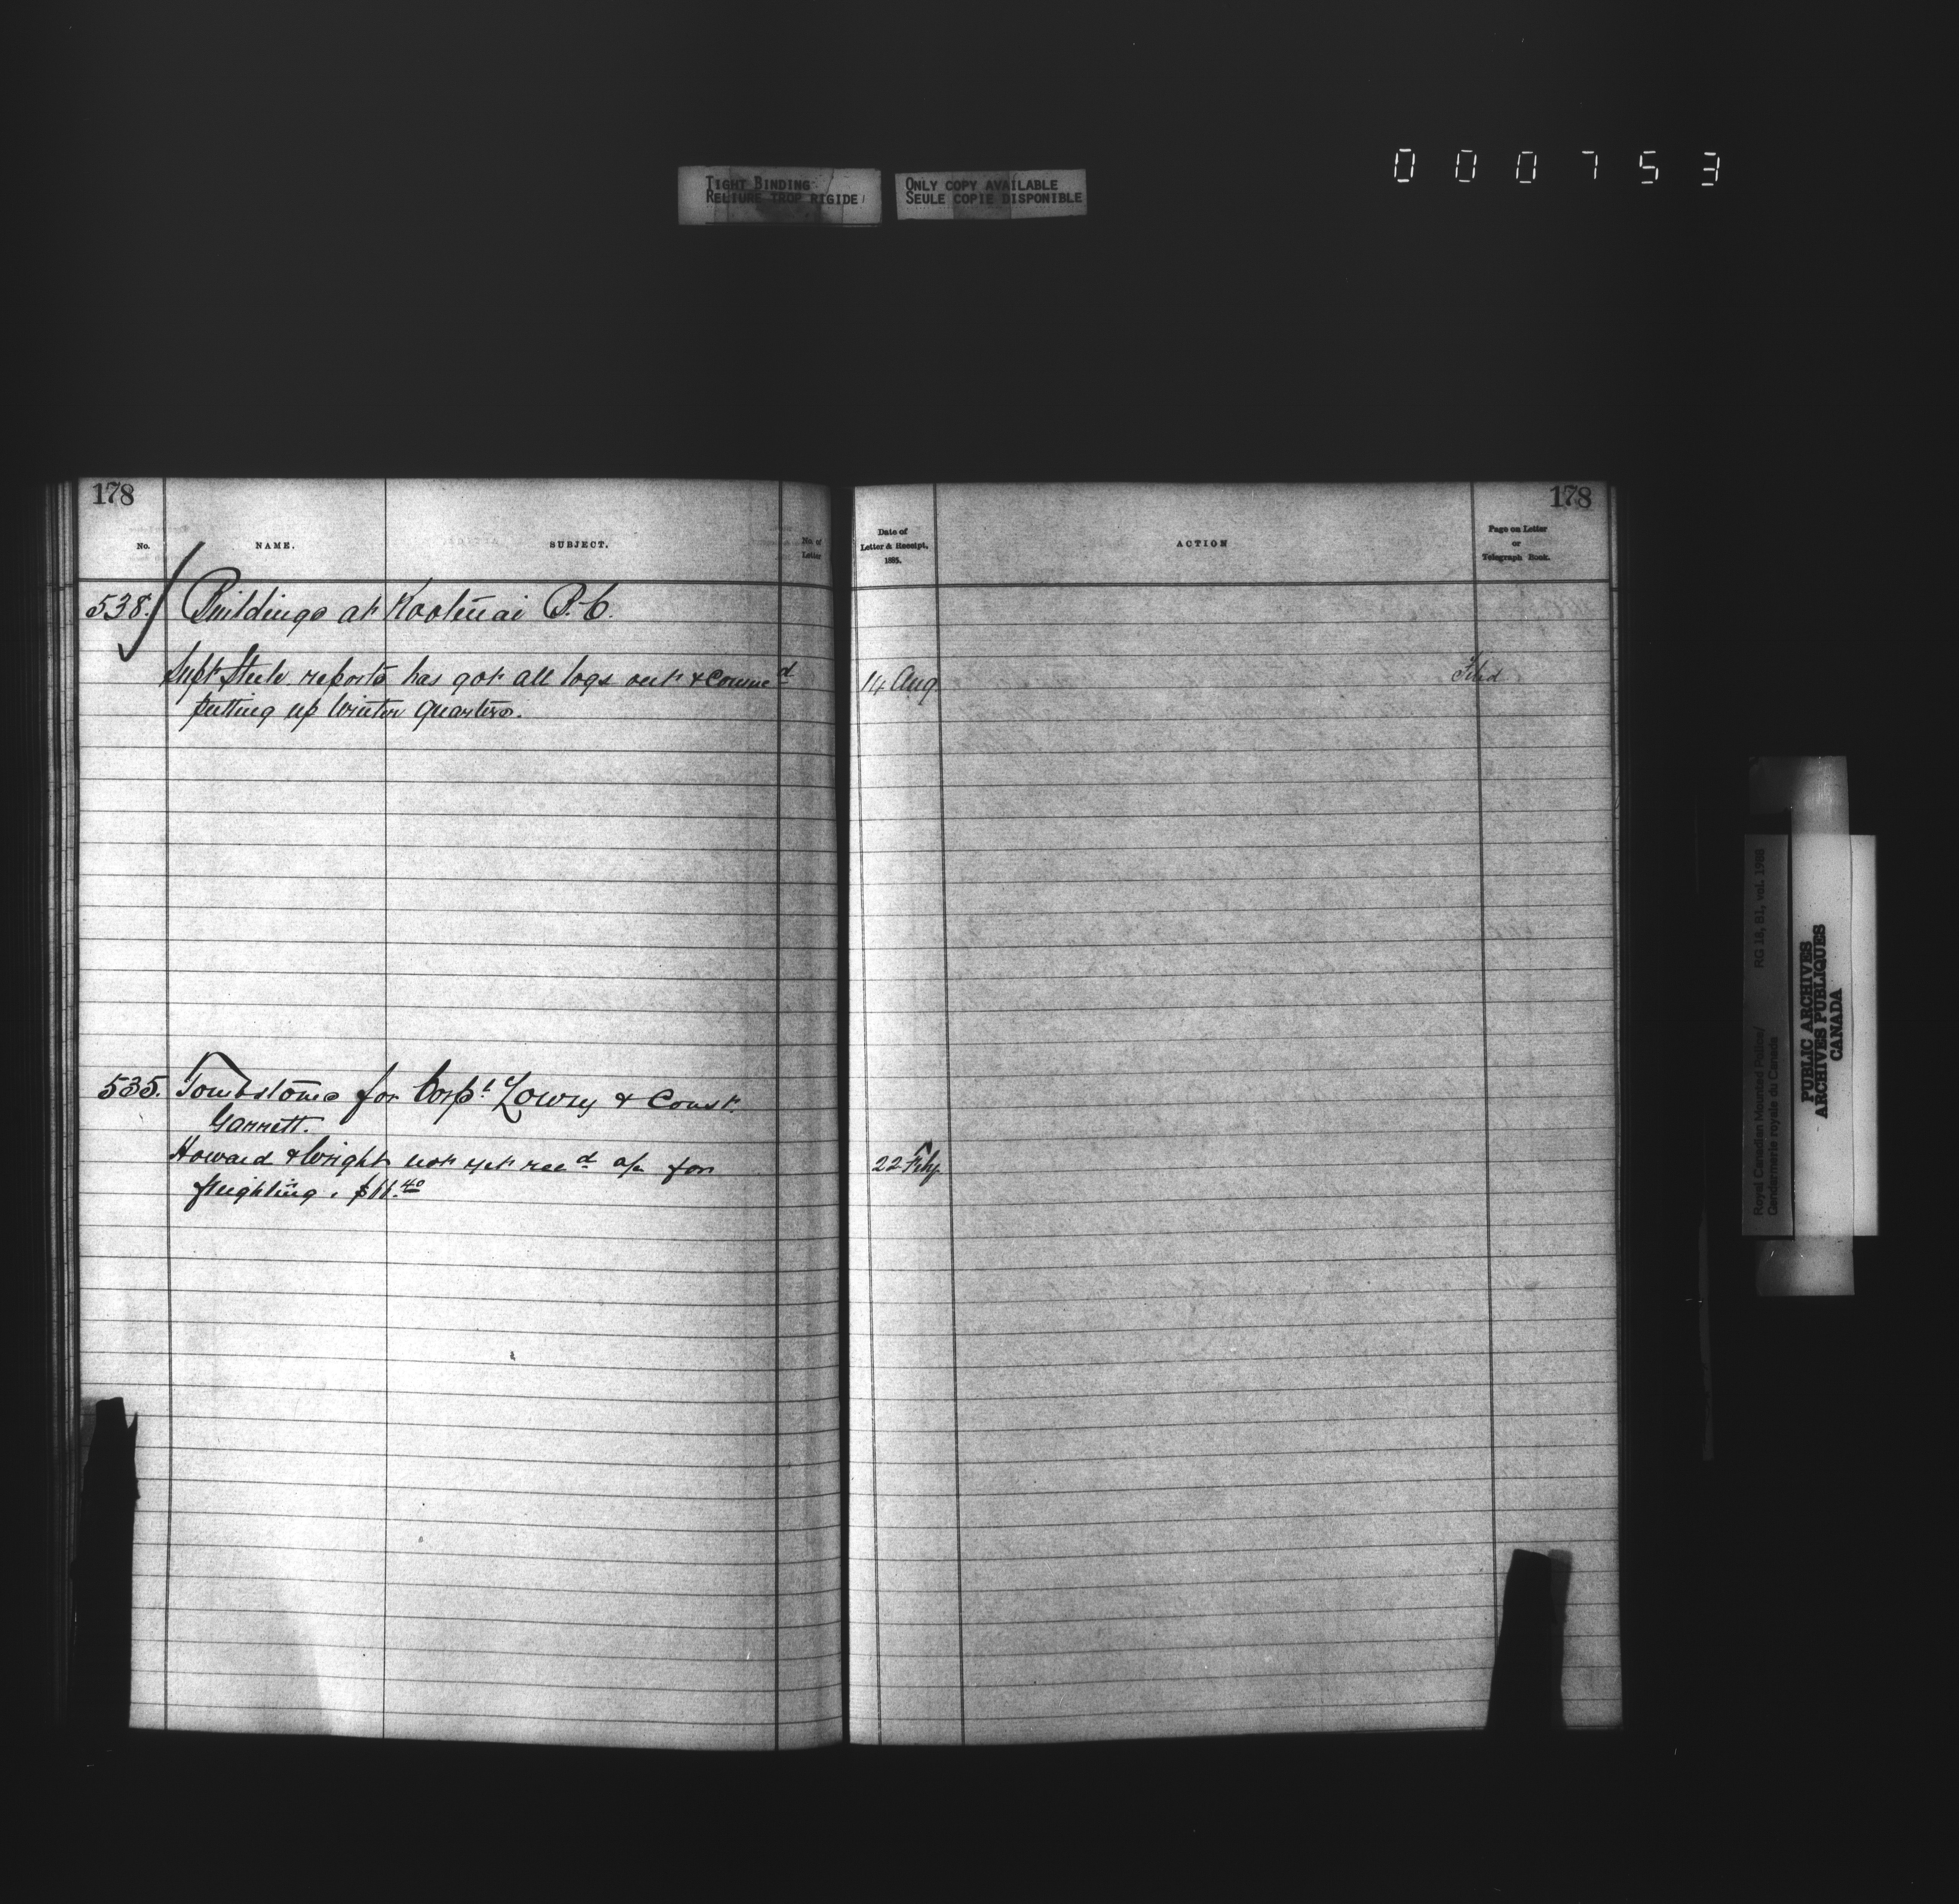 TIGHT BINDING
RELIURE TROP RIGIDE
ONLY COPY AVAILABLE
SEULE COPIE DISPONIBLE
000753
178
No.
NAME.
SUBJECT.
No. of
Letter
538. Buildings at Kootenai B.C.
Supt Steele reports has got all logs out & commed
putting up Winter Quarters.
535. Tombstones for Corpl Lowry & Const.
Garrett.
Howard & Wright not yet recd a/c for
freighting. $11.40
178
Date of
Letter & Receipt,
1885.
ACTION
Page on Letter
or
Telegraph Book.
14 Aug
Filed
22 Feby
Royal Canadian Mounted Police/
Gendarmerie royale du Canada
RG 18, B1, vol. 1988
PUBLIC ARCHIVES
ARCHIVES PUBLIQUES
CANADA